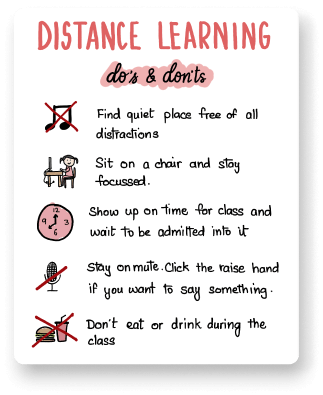 DISTANCE LEARNING
do's & don'ts
Find quiet place free of all
distractions
Sit on a chair and stay
focussed.
12
9 3
6
Show up on time for class and
wait to be admitted into it
Stay on mute. Click the raise hand
if you want to say something.
Don't eat or drink during the
class